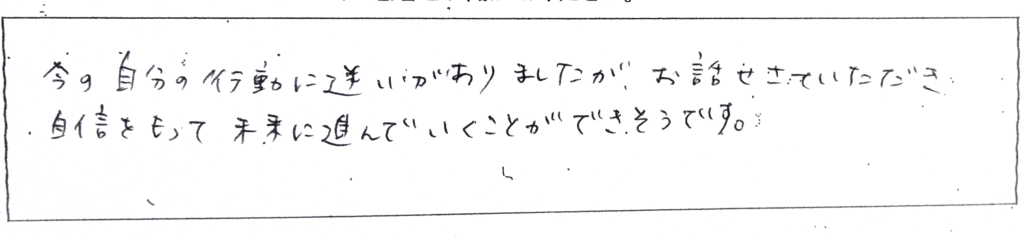 今の自分の行動に迷いがありましたが、お話せさていただき
自信をもって未来に進んでいくことができそうです。